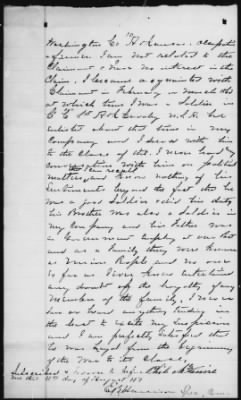 Washington Co Arkansas. Occupation
a farmer. I am not related to the
Claimant & have no interest in the
Claim. I became acquainted with
Claimant in February or March 1862
at which time I was a Soldier in
Co 1st Ark Cavalry
enlisted about this time in my
Company and I served with him
to the close of the. I never had any
conversation with him on political
matters that I can recall and know nothing of his
Sentiments beyond the fact that he
was a good Soldier & did his duty
his Brother was also a Soldier in
my Company and his Father was
in Government employ at one time
and as a family they were known
as Union People and no one
so far as I ever knew entertained
any doubt of the loyalty of any
Member of the family, I never
saw or heard anything tending in
the least to excite my suspicions
and I am perfectly satisfied that
he was loyal from the beginning
of the War to its Close,
Subscribed & Sworn to before
me this day of August 187